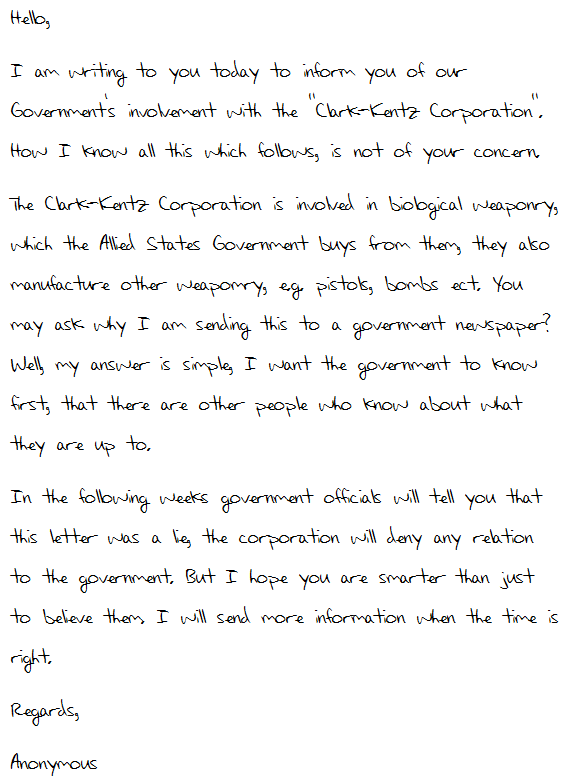 Hello,
I am writing to you today to inform you of our
Government's involvement with the "Clark-Kentz Corporation".
How I know all this which follows, is not of your concern.
The Clark-Kentz Corporation is involved in biological weaponry,
which the Allied States Government buys from them, they also
manufacture other weapomry, e.g. pistols, bombs ect. You
may ask why I am sending this to a government newspaper?
Well, my answer is simple, I want the government to know
first, that there are other people who know about what
they are up to.
In the following weeks government officials will tell you that
this letter was a lie, the corporation will deny any relation
to the government. But I hope you are smarter than just
to believe them, I will send more information when the time is
right.
Regards,
Anonymous